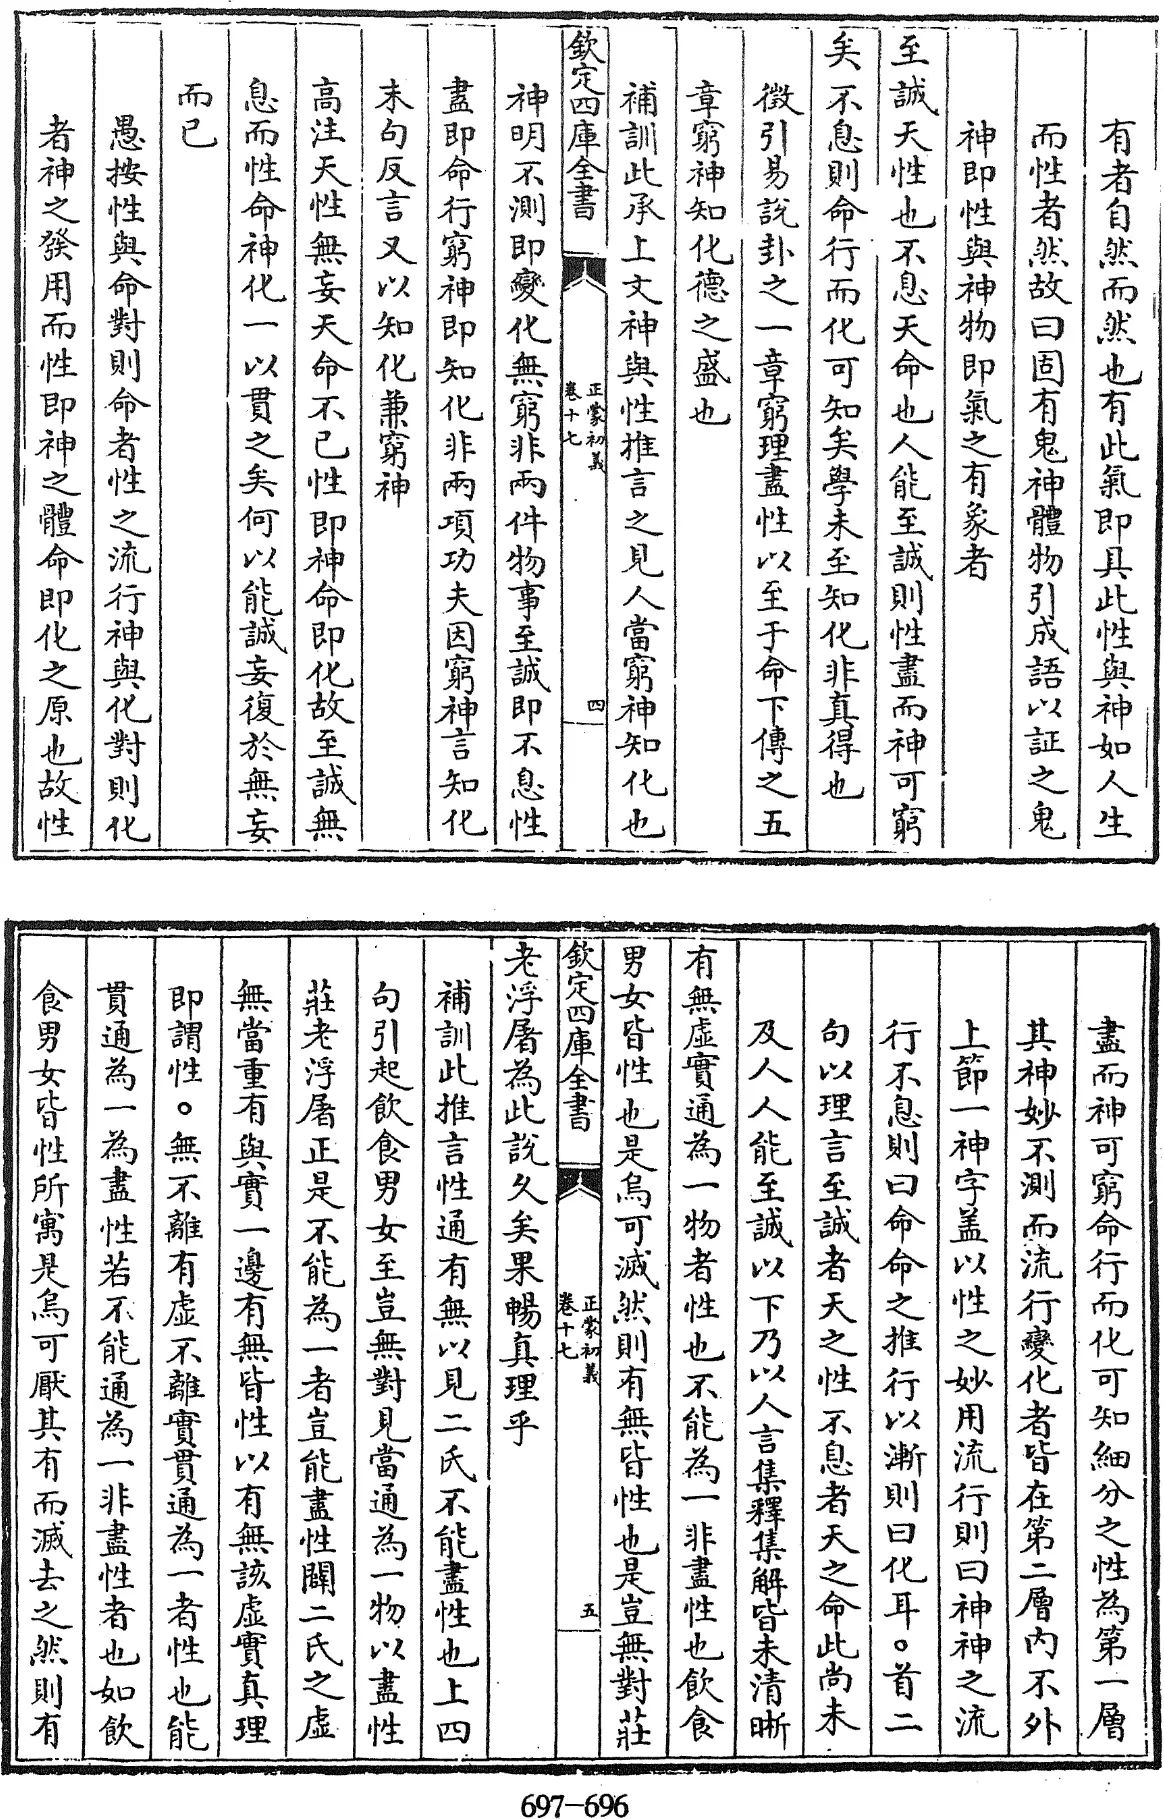 有者自然而然也有此氣即具此性與神如人生
而性者然故曰固有鬼神體物引成語以証之鬼
神即性與神物即氣之有象者
至誠天性也不息天命也人能至誠則性盡而神可窮
矣不息則命行而化可知矣學未至知化非真得也
徵引易說卦之一章窮理盡性以至于命下傳之五
章窮神知化德之盛也
補訓此承上文神與性推言之見人當窮神知化也
欽定四庫全書
正蒙初義
卷十七
四
神明不測即變化無窮非兩件物事至誠即不息性
盡即命行窮神即知化非兩項功夫因窮神言知化
末句反言又以知化兼窮神
高注天性無妄天命不已性即神命即化故至誠無
息而性命神化一以貫之矣何以能誠妄復於無妄
而已
愚按性與命對則命者性之流行神與化對則化
者神之發用而性即神之體命即化之原也故性
盡而神可窮命行而化可知細分之性為第一層
其神妙不測而流行變化者皆在第二層内不外
上節一神字盖以性之妙用流行則曰神神之流
行不息則曰命命之推行以漸則曰化耳。首二
句以理言至誠者天之性不息者天之命此尚未
及人人能至誠以下乃以人言集釋集解皆未清晰
有無虛實通為一物者性也不能為一非盡性也飲食
男女皆性也是烏可滅然則有無皆性也是豈無對莊
欽定四庫全書
正蒙初義
卷十七
五
老浮屠為此說久矣果暢真理乎
補訓此推言性通有無以見二氏不能盡性也上四
句引起飲食男女至豈無對見當通為一物以盡性
莊老浮屠正是不能為一者豈能盡性闢二氏之虛
無當重有與實一邊有無皆性以有無該虛實真理
即謂性。無不離有虛不離實貫通為一者性也能
貫通為一為盡性若不能通為一非盡性者也如飲
食男女皆性所寓是烏可厭其有而滅去之然則有
697—696